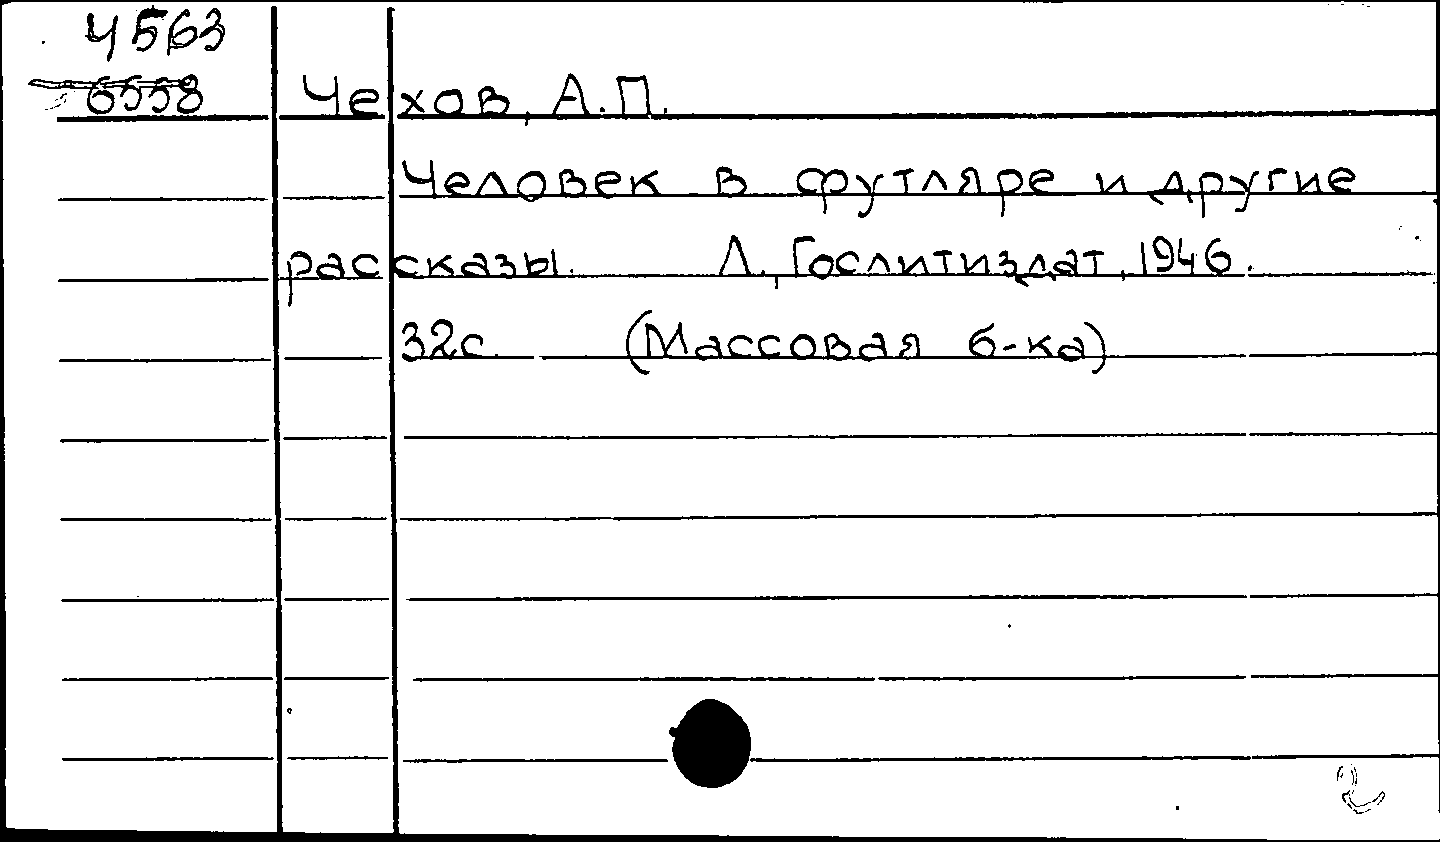 4563
6558
Чехов, А.П.
Человек в футляре и другие
рассказы. Л., Гослитиздат, 1946.
32с. (Массовая б-ка)
2